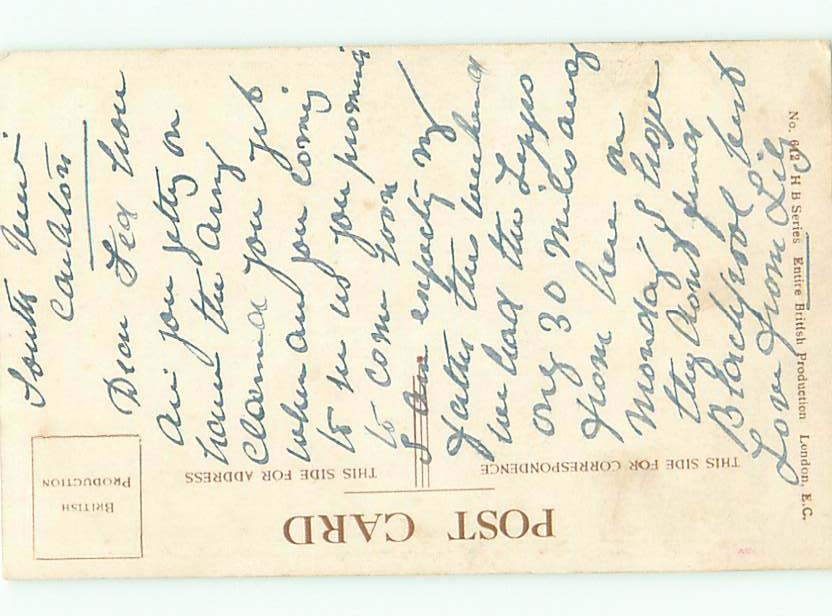 South View
Cauldon
Dear Ted how
are you getting on
have the army
claimed you yet
when are you coming
to see us you promised
to come soon
I am expecting my
father this weekend
we had the Zepps
only 30 miles away
from here on
Monday I hope
they dont find
Blackpool best
Love from Lily
POST CARD
THIS SIDE FOR CORRESPONDENCE
THIS SIDE FOR ADDRESS
BRITISH
PRODUCTION
No. 642 H B Series Entire British Production London, E.C.